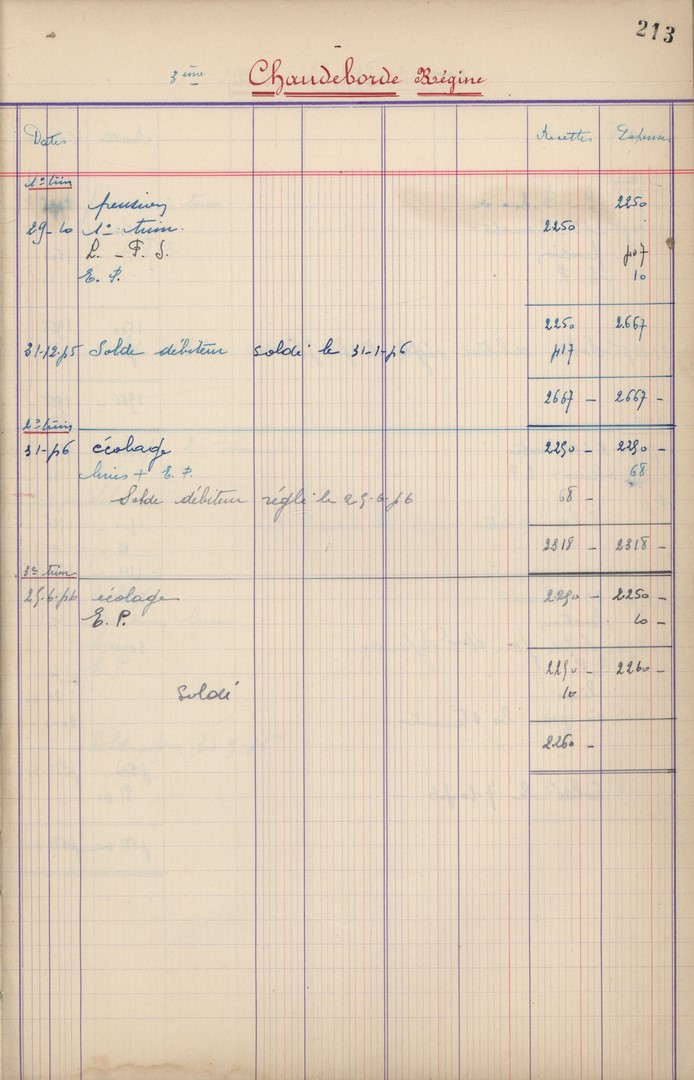 213
3ème Chaudeborde Régine
Dates Recettes Dépenses
1er trim
pension 2250
29-10 1er trim. 2250
L. - F. S. 407
E. P. 10
2250 2667
31-12-45 Solde débiteur soldé le 31-1-46 417
2667 - 2667 -
2e trim
31-1-46 écolage 2250 - 2250 -
livres + E. P. 68
Solde débiteur réglé le 25-6-46 68 -
2318 - 2318 -
3e trim
25-6-46 écolage 2250 - 2250 -
E. P. 10 -
2250 - 2260 -
Soldé 10
2260 -